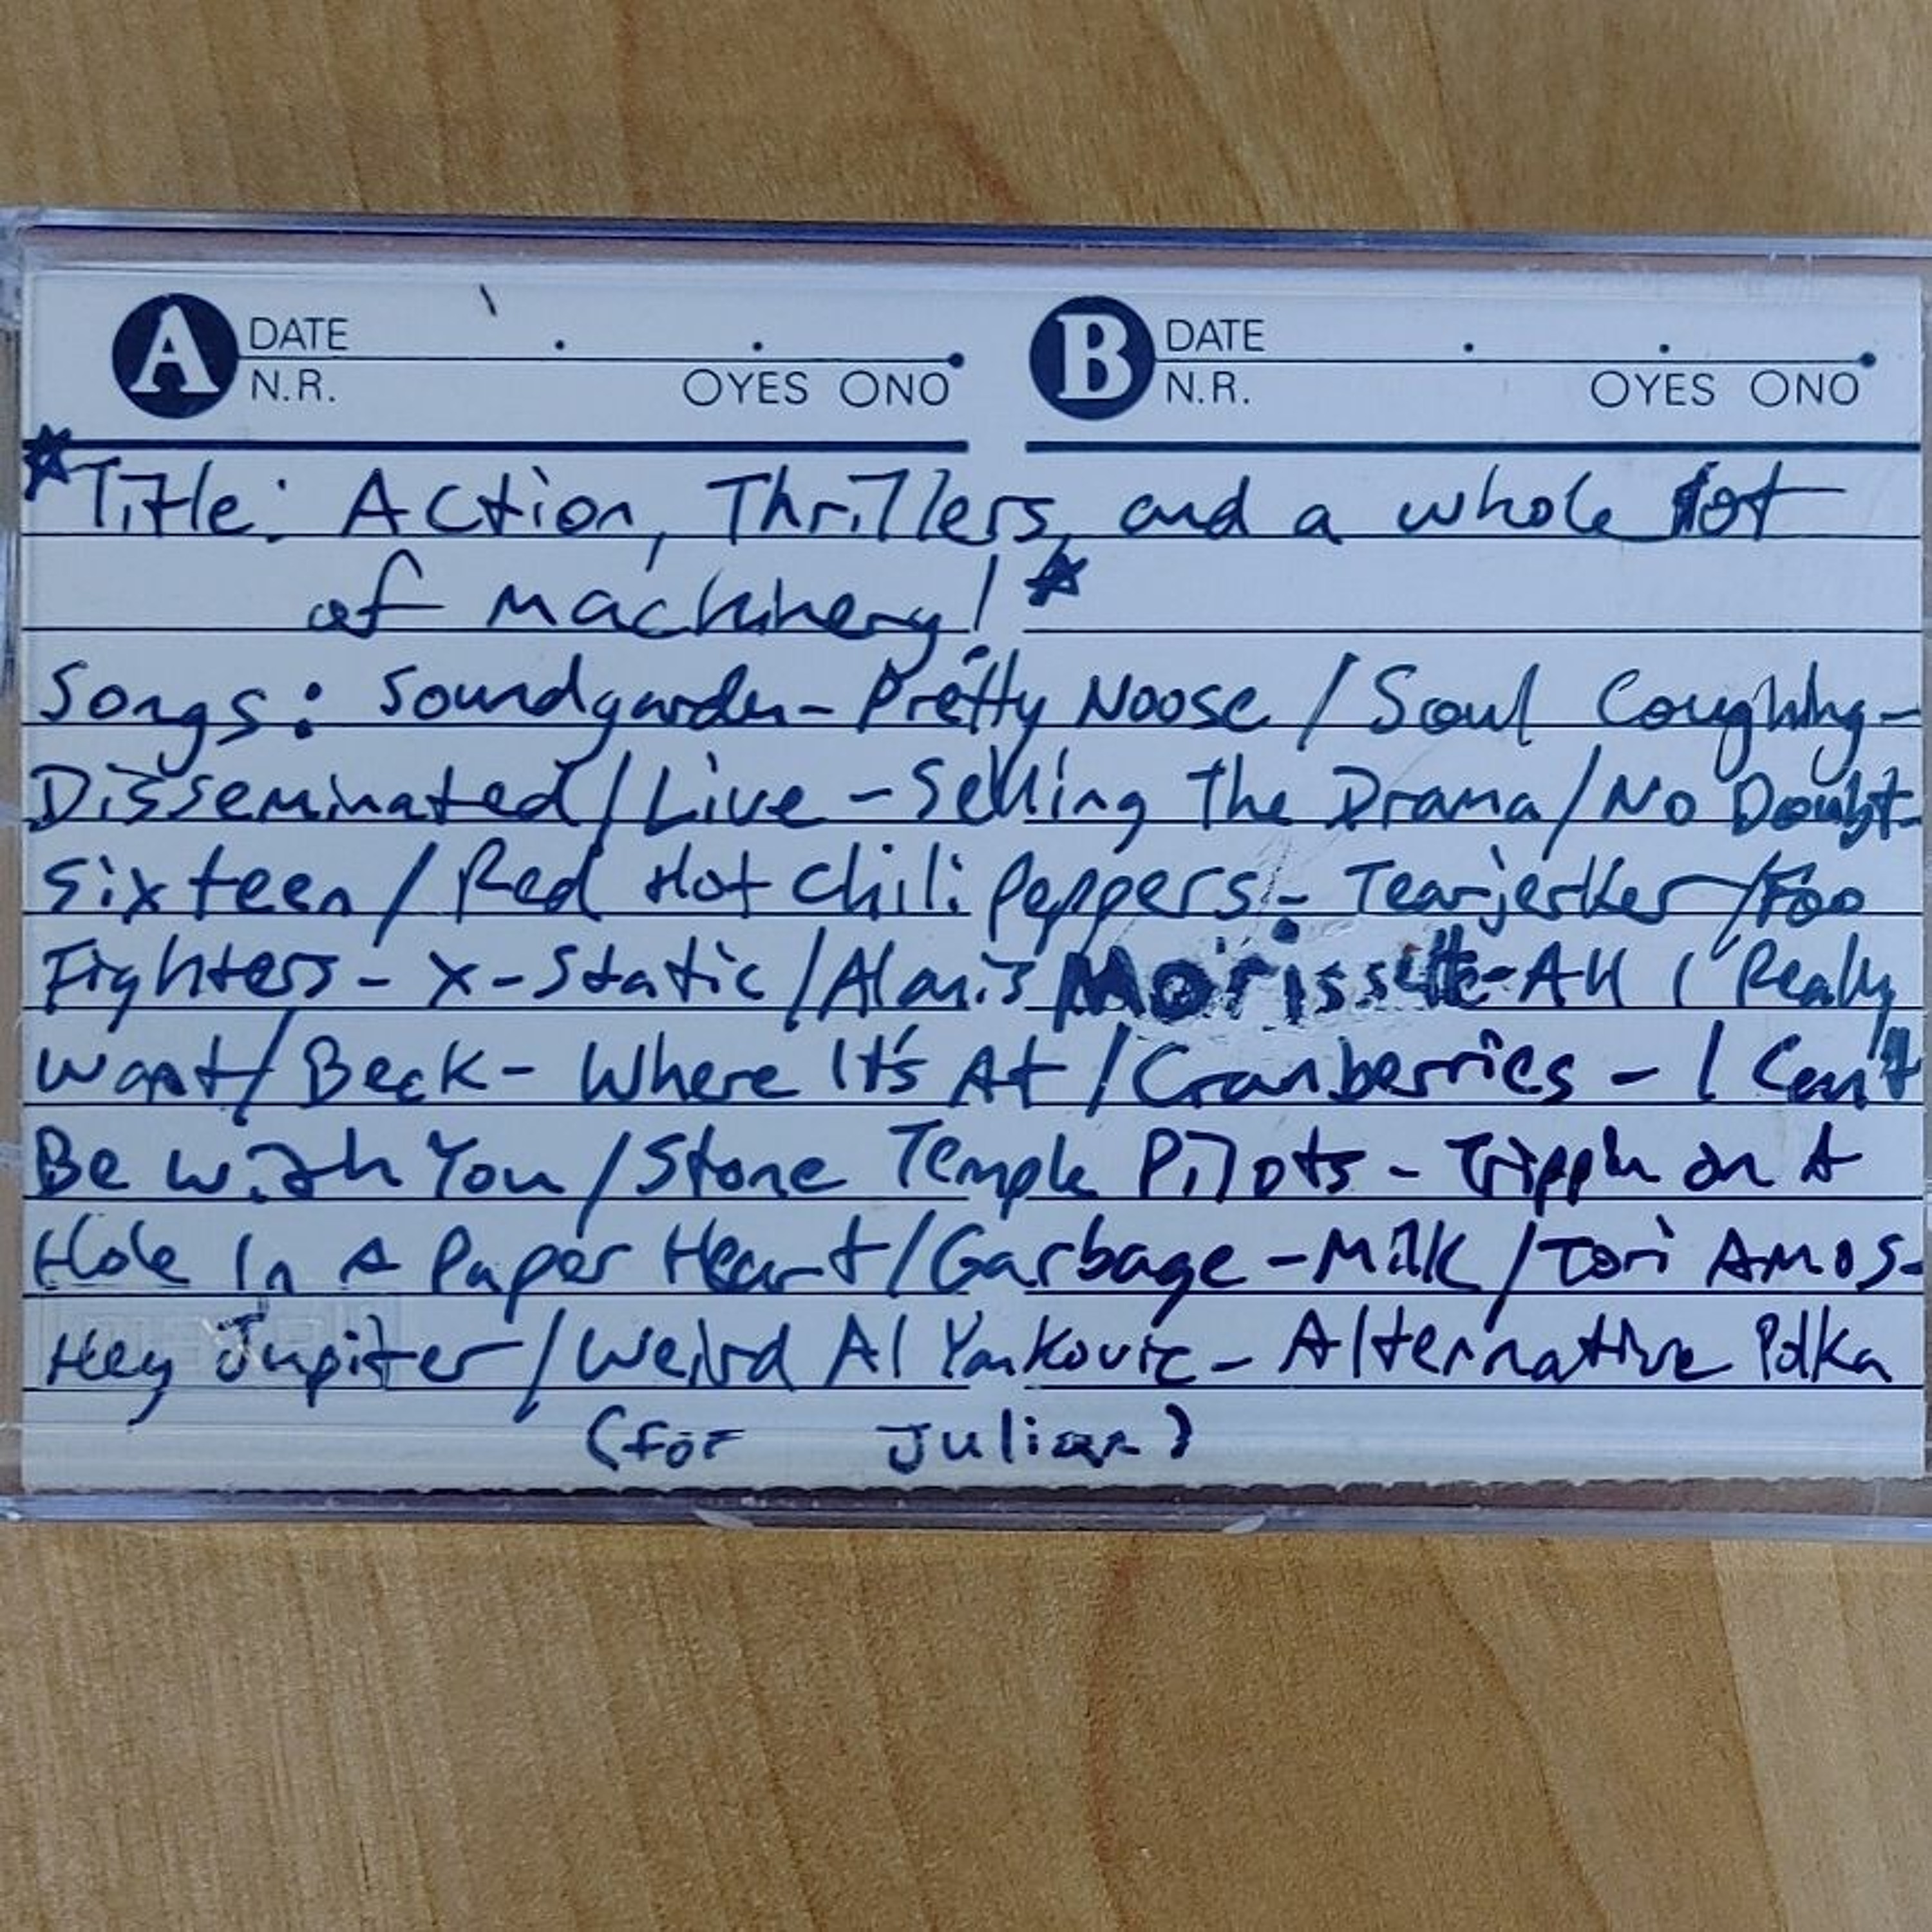 A DATE B DATE
N.R. OYES ONO N.R. OYES ONO
*Title: Action, Thrillers, and a whole lot
of machinery! *
Songs: Soundgarden - Pretty Noose / Soul Coughing -
Disseminated / Live - Selling The Drama / No Doubt -
Sixteen / Red Hot Chili Peppers - Tearjerker / Foo
Fighters - X-Static / Alanis Morissette - All I Really
Want / Beck - Where It's At / Cranberries - I Can't
Be With You / Stone Temple Pilots - Trippin on A
Hole In A Paper Heart / Garbage - Milk / Tori Amos -
Hey Jupiter / Weird Al Yankovic - Alternative Polka
(for Julian)